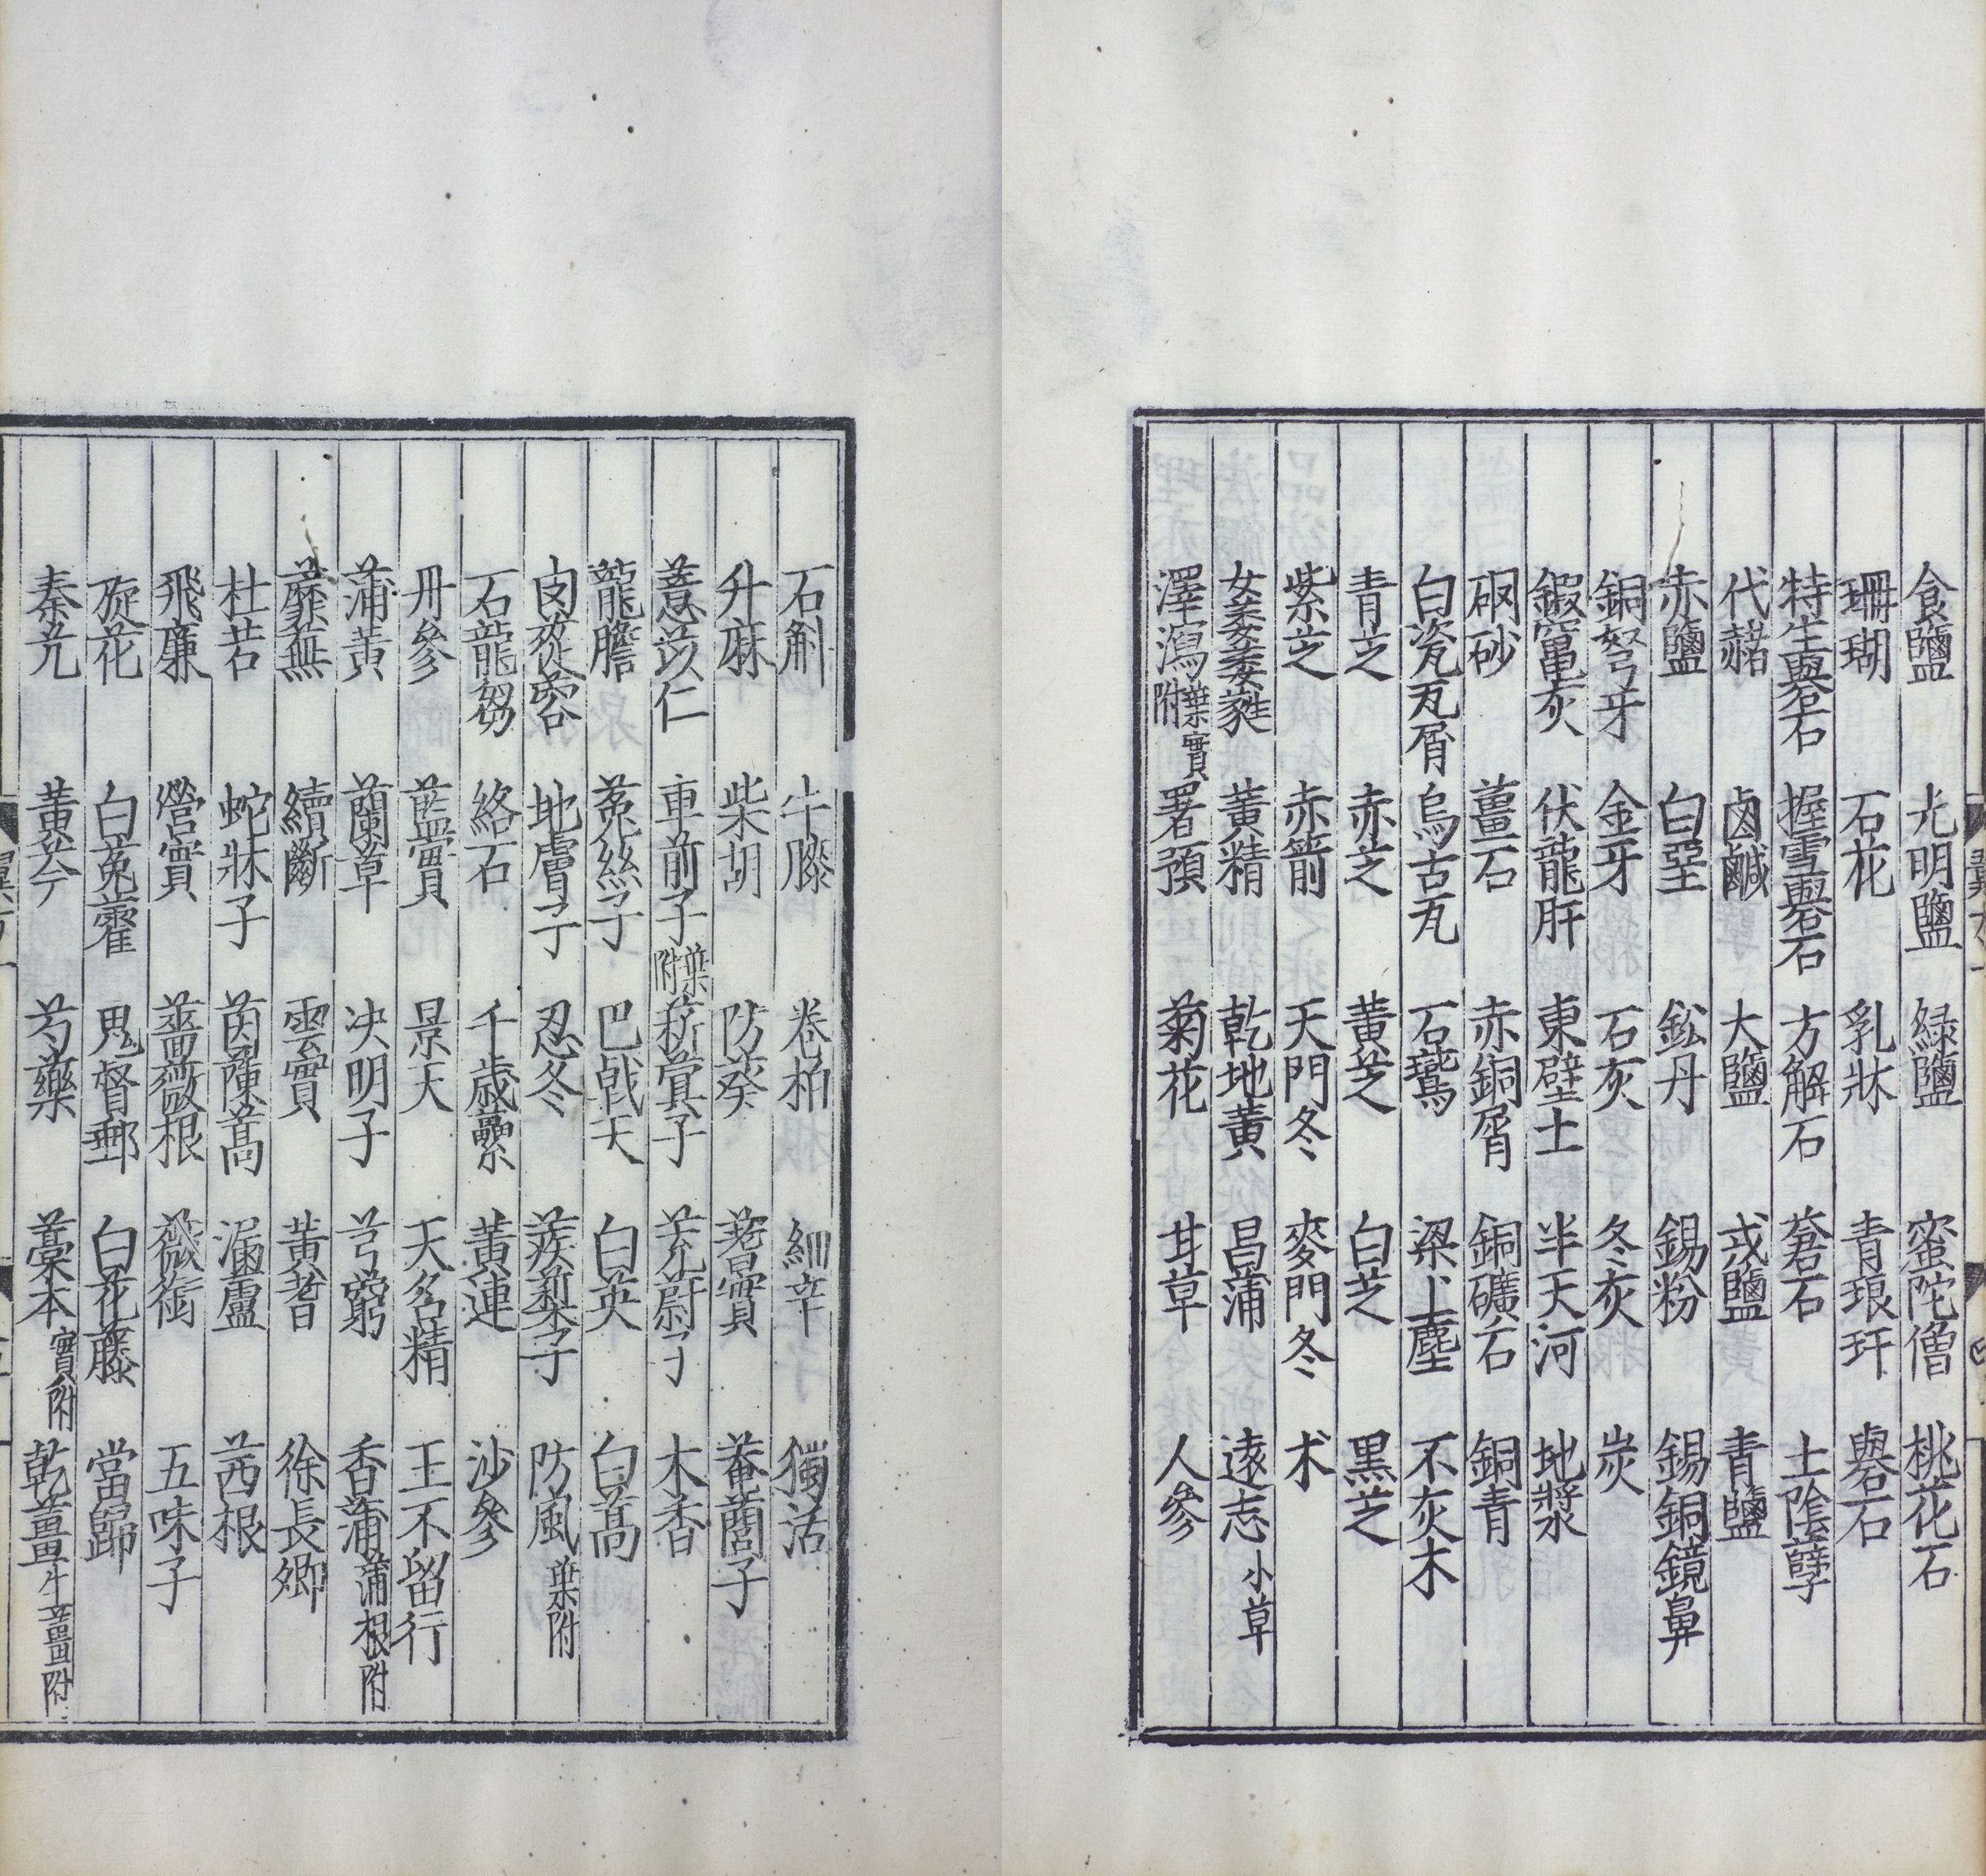 食鹽 光明鹽 緑鹽 蜜陀僧 桃花石
珊瑚 石花 乳牀 青琅玕 礜石
特生礜石 握雪礜石 方解石 蒼石 土陰孽
代赭 鹵鹹 大鹽 戎鹽 青鹽
赤鹽 白堊 鈆丹 錫粉 錫銅鏡鼻
銅弩牙 金牙 石灰 冬灰 炭
鍜竃灰 伏龍肝 東壁土 半天河 地漿
硇砂 薑石 赤銅屑 銅礦石 銅青
白瓷瓦屑 烏古瓦 石鷰 梁上塵 不灰木
青芝 赤芝 黄芝 白芝 黒芝
紫芝 赤箭 天門冬 麥門冬 朮
女萎萎蕤 黄精 乾地黄 昌蒲 遠志小草
澤瀉葉實附 署預 菊花 甘草 人參
石斛 牛膝 卷柏 細辛 獨活
升麻 柴胡 防葵 蓍實 菴䕡子
薏苡仁 車前子葉附 菥蓂子 茺蔚子 木香
龍膽 菟絲子 巴戟天 白英 白蒿
肉蓯蓉 地膚子 忍冬 蒺蔾子 防風葉附
石龍芻 絡石 千歳虆 黄連 沙參
丹參 藍實 景天 天名精 王不留行
蒲黄 蘭草 决明子 芎藭 香蒲蒲根附
蘼蕪 續斷 雲實 黄耆 徐長卿
杜若 蛇牀子 茵蔯蒿 漏盧 茜根
飛廉 營實 薔薇根 薇銜 五味子
旋花 白菟藿 鬼督郵 白花藤 當歸
秦艽 黄芩 芍藥 藁本實附 乾薑生薑附